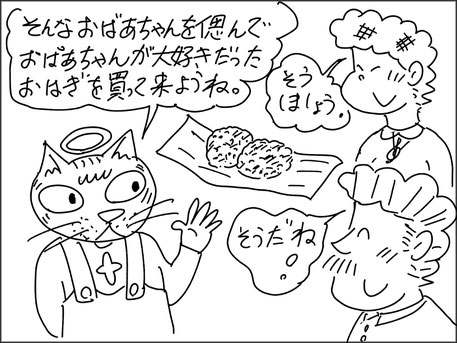 そんなおばあちゃんを偲んで
おばあちゃんが大好きだった
おはぎを買って来ようね。
そう
しましょう。
そうだね